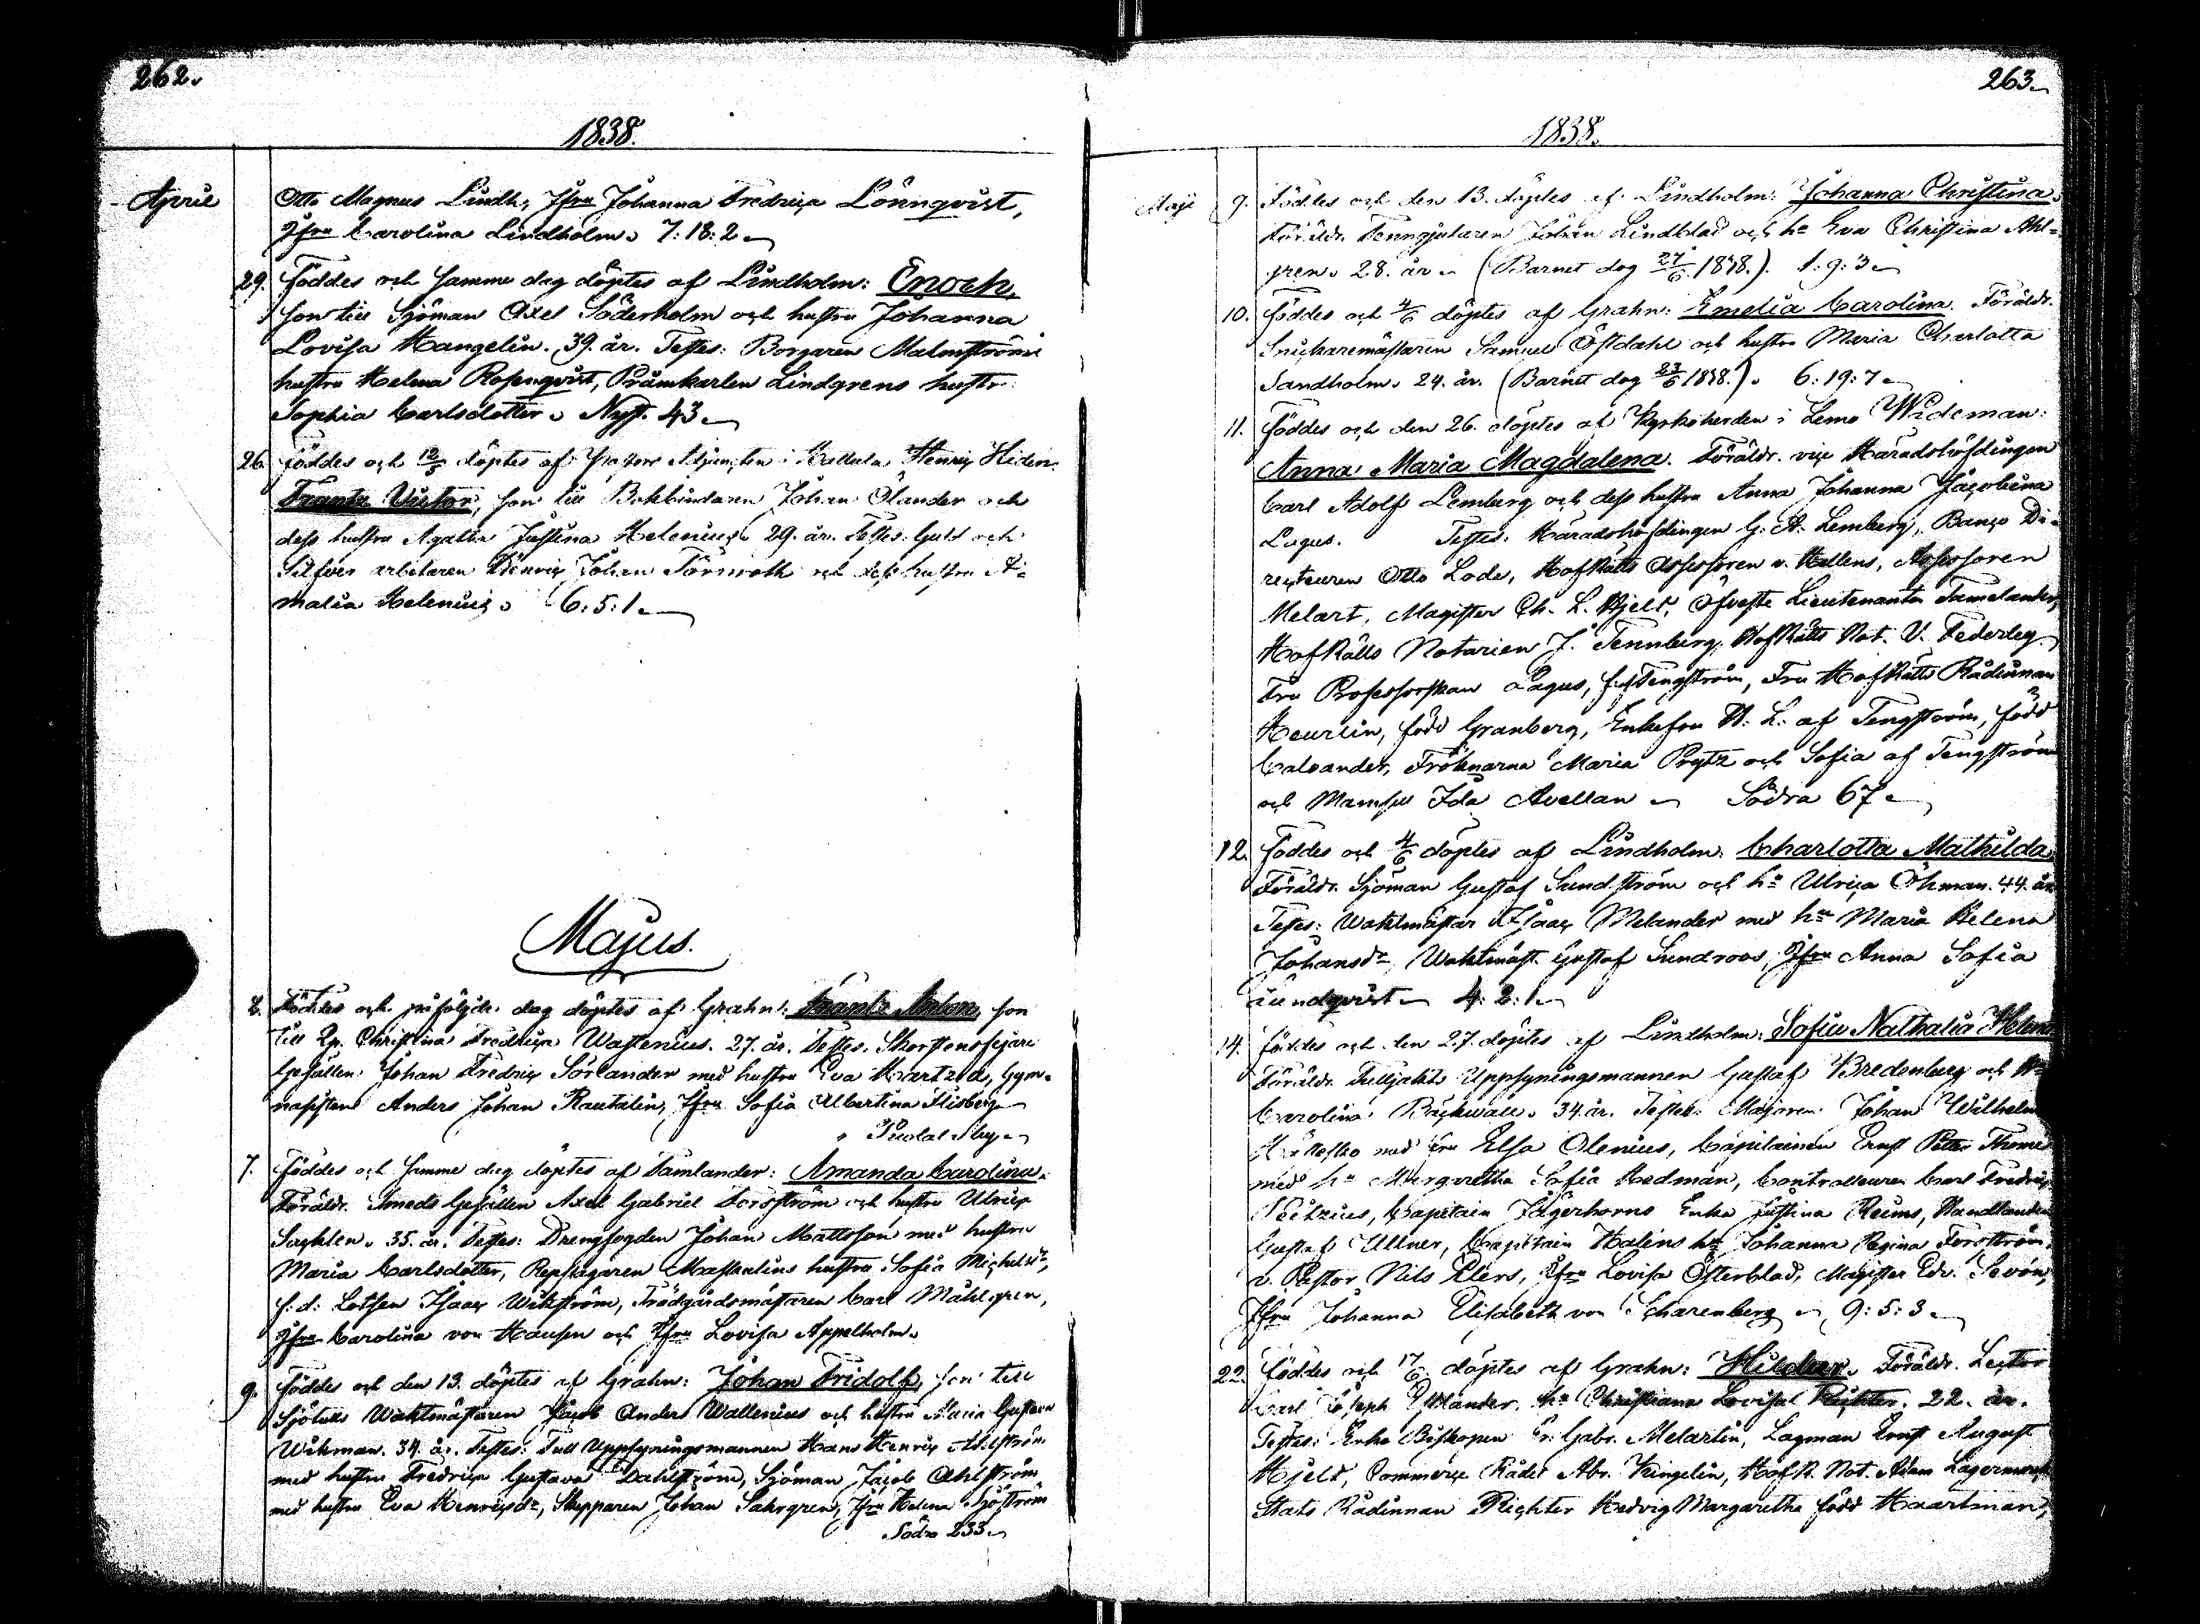 262.
1838.
April
Otto Magnus Lindh, Jfru Johanna Fredrica Lönnqvist,
Jfru Carolina Lindholm. 7:18:2
29. Föddes och samme dag döptes af Lindholm: Enoch,
son till Sjöman Axel Söderholm och hustru Johanna
Lovisa Hangelin. 39. år. Testes: Borgaren Malmströms
hustru Helena Rosenqvist, Pråmkarlen Lindgrens hustr.
Sophia Carlsdotter. Nyst. 43
26. Föddes och 12/5 döptes af Pastors Adjuncten i Hallula Henric Hiden.
Frantz Victor, son till Bokbindaren Johan Ölander och
dess hustru Agatha Justina Helenius. 29. år. Testes: Guld och
Silfver arbetaren Henric Johan Törnroth och dess hustru A-
malia Helenius. 6:5:1.
Majus.
Föddes och påföljde. dag döptes af Grahn: Frantz Anton, son
till Qp. Christina Fredrica Wastenius. 27. år. Testes. Skorstensfejare
Gesällen Johan Fredric Sörlander med hustru Eva Hartzell, Gym-
nasisten Anders Johan Rautalin, Jfru Sofia Albertina Flisberg
7. Föddes och samme dag döptes af Tamlander: Amanda Carolina.
Föräldr. Smeds Gesällen Axel Gabriel Forsström och hustru Ulrica
35. år. Testes: Drengfogden Johan Mattsson med hustru
Maria Carlsdotter, Repslagaren hustru Sofia Michelsdr,
f: d: Lotsen Isaac Wikström, Trädgårdsmästaren Carl Måhlgren,
Jfru Carolina von Hausen och Jfru Lovisa Appelholm.
9. Föddes och den 13. döptes af Grahn: Johan Fridolf, son till
Sjötulls Wacktmästaren Jacob Anders Wallenius och hustru Maria Gustava
Wikman. 34. år. Testes: Tull Uppsyningsmannen Hans Henric
med hustru Fredrica Gustava Dahlström, Sjöman Jacob Ahlström
med hustru Eva Henricsdr, Skepparen Johan Sahrgren, Jfru Helena Sjöström
Södra 233
263.
1838.
Maji
9. Föddes och den 13. döptes af Lindholm: Johanna Christina.
Föräldr. Tenngjutaren Johan Lindblad och hu Eva Christina Ahl-
gren. 28. år. (Barnet dog 27/6 1838.). 1:9:3
10. Föddes och 4/6 döptes af Grahn: Emelia Carolina. Föräldr.
Snickaremästaren Samuel Östdahl och hustru Maria Charlotta
Sandholm. 24. år. (Barnet dog 23/6 1838.). 6:19:7
11. Föddes och den 26. döptes af Kyrkoherden i Lemo Wideman:
Anna Maria Magdalena. Föräldr. vice Häradshöfdingen
Carl Adolf Lemberg och dess hustru Anna Johanna Jacobina
Lagus. Testes. Häradshöfdingen G. A. Lemberg, Banco Di-
recteuren Otto Lode, HofRätts Assessoren v. Hellens, Assessoren
Melart, Magister Ch. L. Hjelt, Öfverste Lieutenanten Tamelander,
HofRätts Notarien J. Tennberg, HofRätts Not. V. Federley,
Fru Professorskan Lagus, f. af Tengström, Fru HofRätts Rådinnan
Heurlin, född Granberg, Enkefru H: L: af Tengström, född
Caloander, Fröknarna Maria Prytz och Sofia af Tengström
och Mamsell Ida Avellan Södra 67
12. Föddes och 4/6 döptes af Lindholm: Charlotta Mathilda
Föräldr. Sjöman Gustaf Sundström och hu Ulrica Öhman. 44. år
Testes: Wacktmästar Isaac Melander med hru Maria Helena
Johansdr, Wacktmäst. Gustaf Sundroos, Jfru Anna Sofia
Lundqvist 4:2:1
14. Föddes och den 27. döptes af Lindholm: Sofia Nathalia Helena
Föräldr. Tulljakts Uppsyningsmannen Gustaf Bredenberg och hu
Carolina Bäckwall. 34. år. Testes: Majoren Johan Wilhelm
med fru Elsa Olenius, Capitainen Ernst Petter Thomé
med hu Margaretha Sofia Hedman, Controlleuren Carl Fredric
Capitain Jägerhorns Enka Justina Reims, Handlanden
Gustaf Ullner, Capitain Halins hu Johanna Regina Forsström.
v. Pastor Nils Elers, Jfru Lovisa Österblad, Magister Edv. Sevón,
Jfru Johanna Elisabeth von Scharenberg 9:5:3
22. Föddes och 17/6 döptes af Grahn: Föräldr. Lector
Carl Joseph Estlander, hu Christiana Lovisa Richter. 22. år.
Testes: Erke Biskopen Er. Gabr. Melartin, Lagman Ernst August
Hjelt, Commerce Rådet Abr. Kingelin, HofR. Not. Adam Lagermarck
Stats Rådinnan Richter Hedvig Margaretha född Haartman,